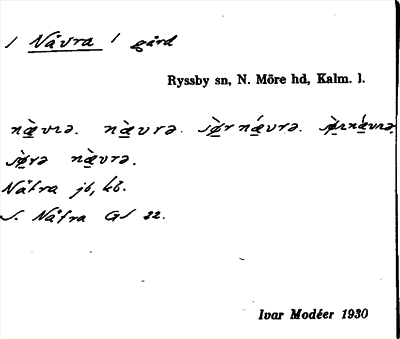 / Nåvra / gård
Ryssby sn, N. Möre hd, Kalm. l.
næ̀vrə. næ̀vrə. sø̀r nǽvrə. sø̀rnǽvrə
sø̀rə næ̀vrə.
Nåfra jb, kb.
S. Nåfra GS 22.
Ivar Modéer 1930